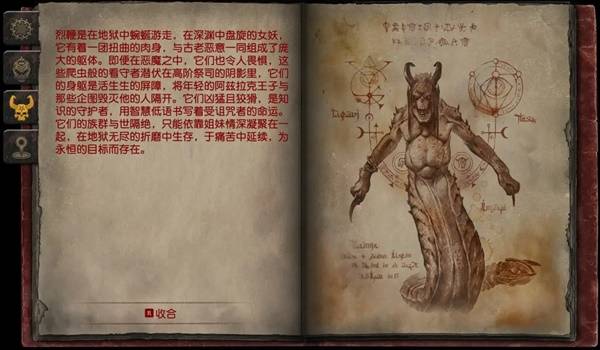 烈鞭是在地狱中蜿蜒游走，在深渊中盘旋的女妖，
它有着一团扭曲的肉身，与古老恶意一同组成了庞
大的躯体。即便在恶魔之中，它们也令人畏惧，这
些爬虫般的看守者潜伏在高阶祭司的阴影里，它们
的身躯是活生生的屏障，将年轻的阿兹拉克王子与
那些企图毁灭他的人隔开。它们凶猛且狡猾，是知
识的守护者，用智慧低语书写着受诅咒者的命运。
它们的族群与世隔绝，只能依靠姐妹情深凝聚在一
起，在地狱无尽的折磨中生存，于痛苦中延续，为
永恒的目标而存在。
收合